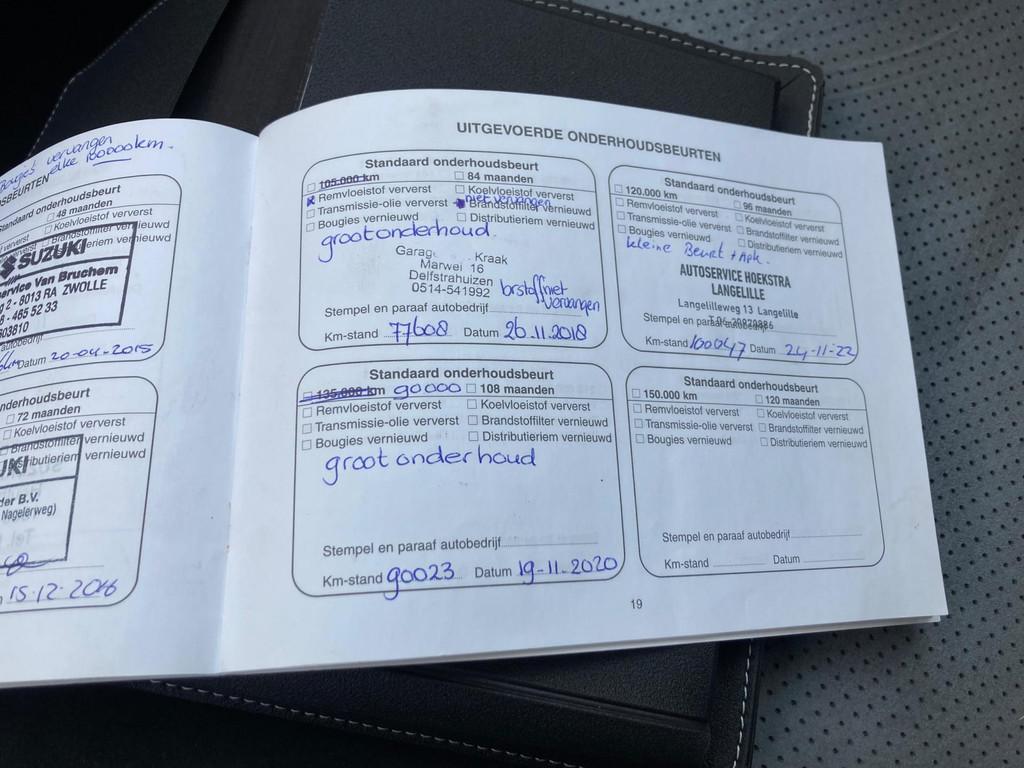 vervangen
elke 100000km.
Standaard onderhoudsbeurt
48 maanden
Koelvloeistof ververst
Brandstoffilter vernieuwd
SUZUKI
Service Van Bruchem
2 - 8013 RA ZWOLLE
Datum 20-04-2015
onderhoudsbeurt
72 maanden
Koelvloeistof ververst
Brandstoffilter vernieuwd
Distributieriem vernieuwd
der B.V.
Nagelerweg)
15-12-2016
UITGEVOERDE ONDERHOUDSBEURTEN
Standaard onderhoudsbeurt
105.000 km 84 maanden
Remvloeistof ververst Koelvloeistof ververst
niet vervangen
Transmissie-olie ververst Brandstoffilter vernieuwd
Bougies vernieuwd Distributieriem vernieuwd
groot onderhoud.
Garag. Kraak
Marwei 16
Delfstrahuizen
0514-541992
niet
vervangen
Stempel en paraaf autobedrijf
Km-stand 77608 Datum 26.11.2018
Standaard onderhoudsbeurt
120.000 km 96 maanden
Remvloeistof ververst Koelvloeistof ververst
Transmissie-olie ververst Brandstoffilter vernieuwd
Bougies vernieuwd Distributieriem vernieuwd
kleine Beurt + Apk.
AUTOSERVICE HOEKSTRA
LANGELILLE
Langelilleweg 13 Langelille
Stempel en paraaf autobedrijf
Km-stand 100047 Datum 24-11-22
Standaard onderhoudsbeurt
135.000 km 90000 108 maanden
Remvloeistof ververst Koelvloeistof ververst
Transmissie-olie ververst Brandstoffilter vernieuwd
Bougies vernieuwd Distributieriem vernieuwd
groot onderhoud
Stempel en paraaf autobedrijf
Km-stand 90023 Datum 19-11-2020
Standaard onderhoudsbeurt
150.000 km 120 maanden
Remvloeistof ververst Koelvloeistof ververst
Transmissie-olie ververst Brandstoffilter vernieuwd
Bougies vernieuwd Distributieriem vernieuwd
Stempel en paraaf autobedrijf
Km-stand Datum
19